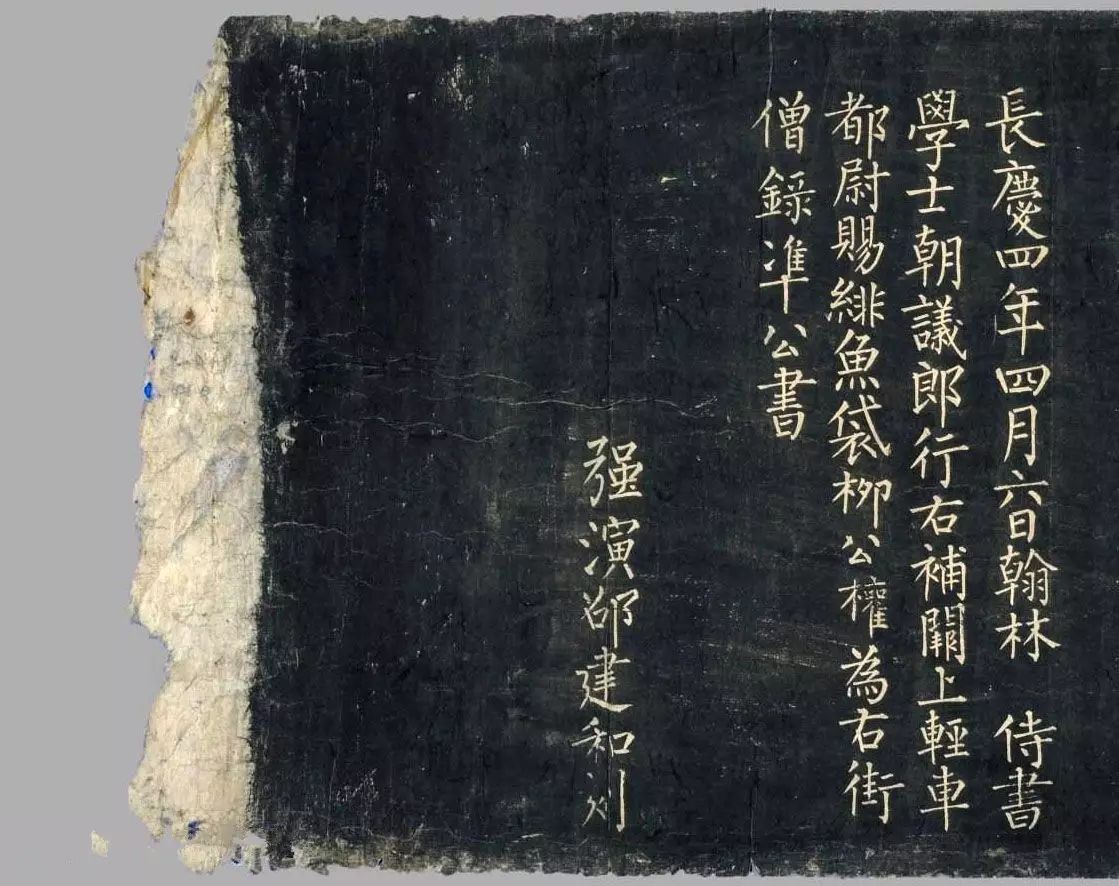 長慶四年四月六日翰林 侍書
學士朝議郎行右補闕上輕車
都尉賜緋魚袋柳公權為右街
僧錄准公書
强演邵建和刻